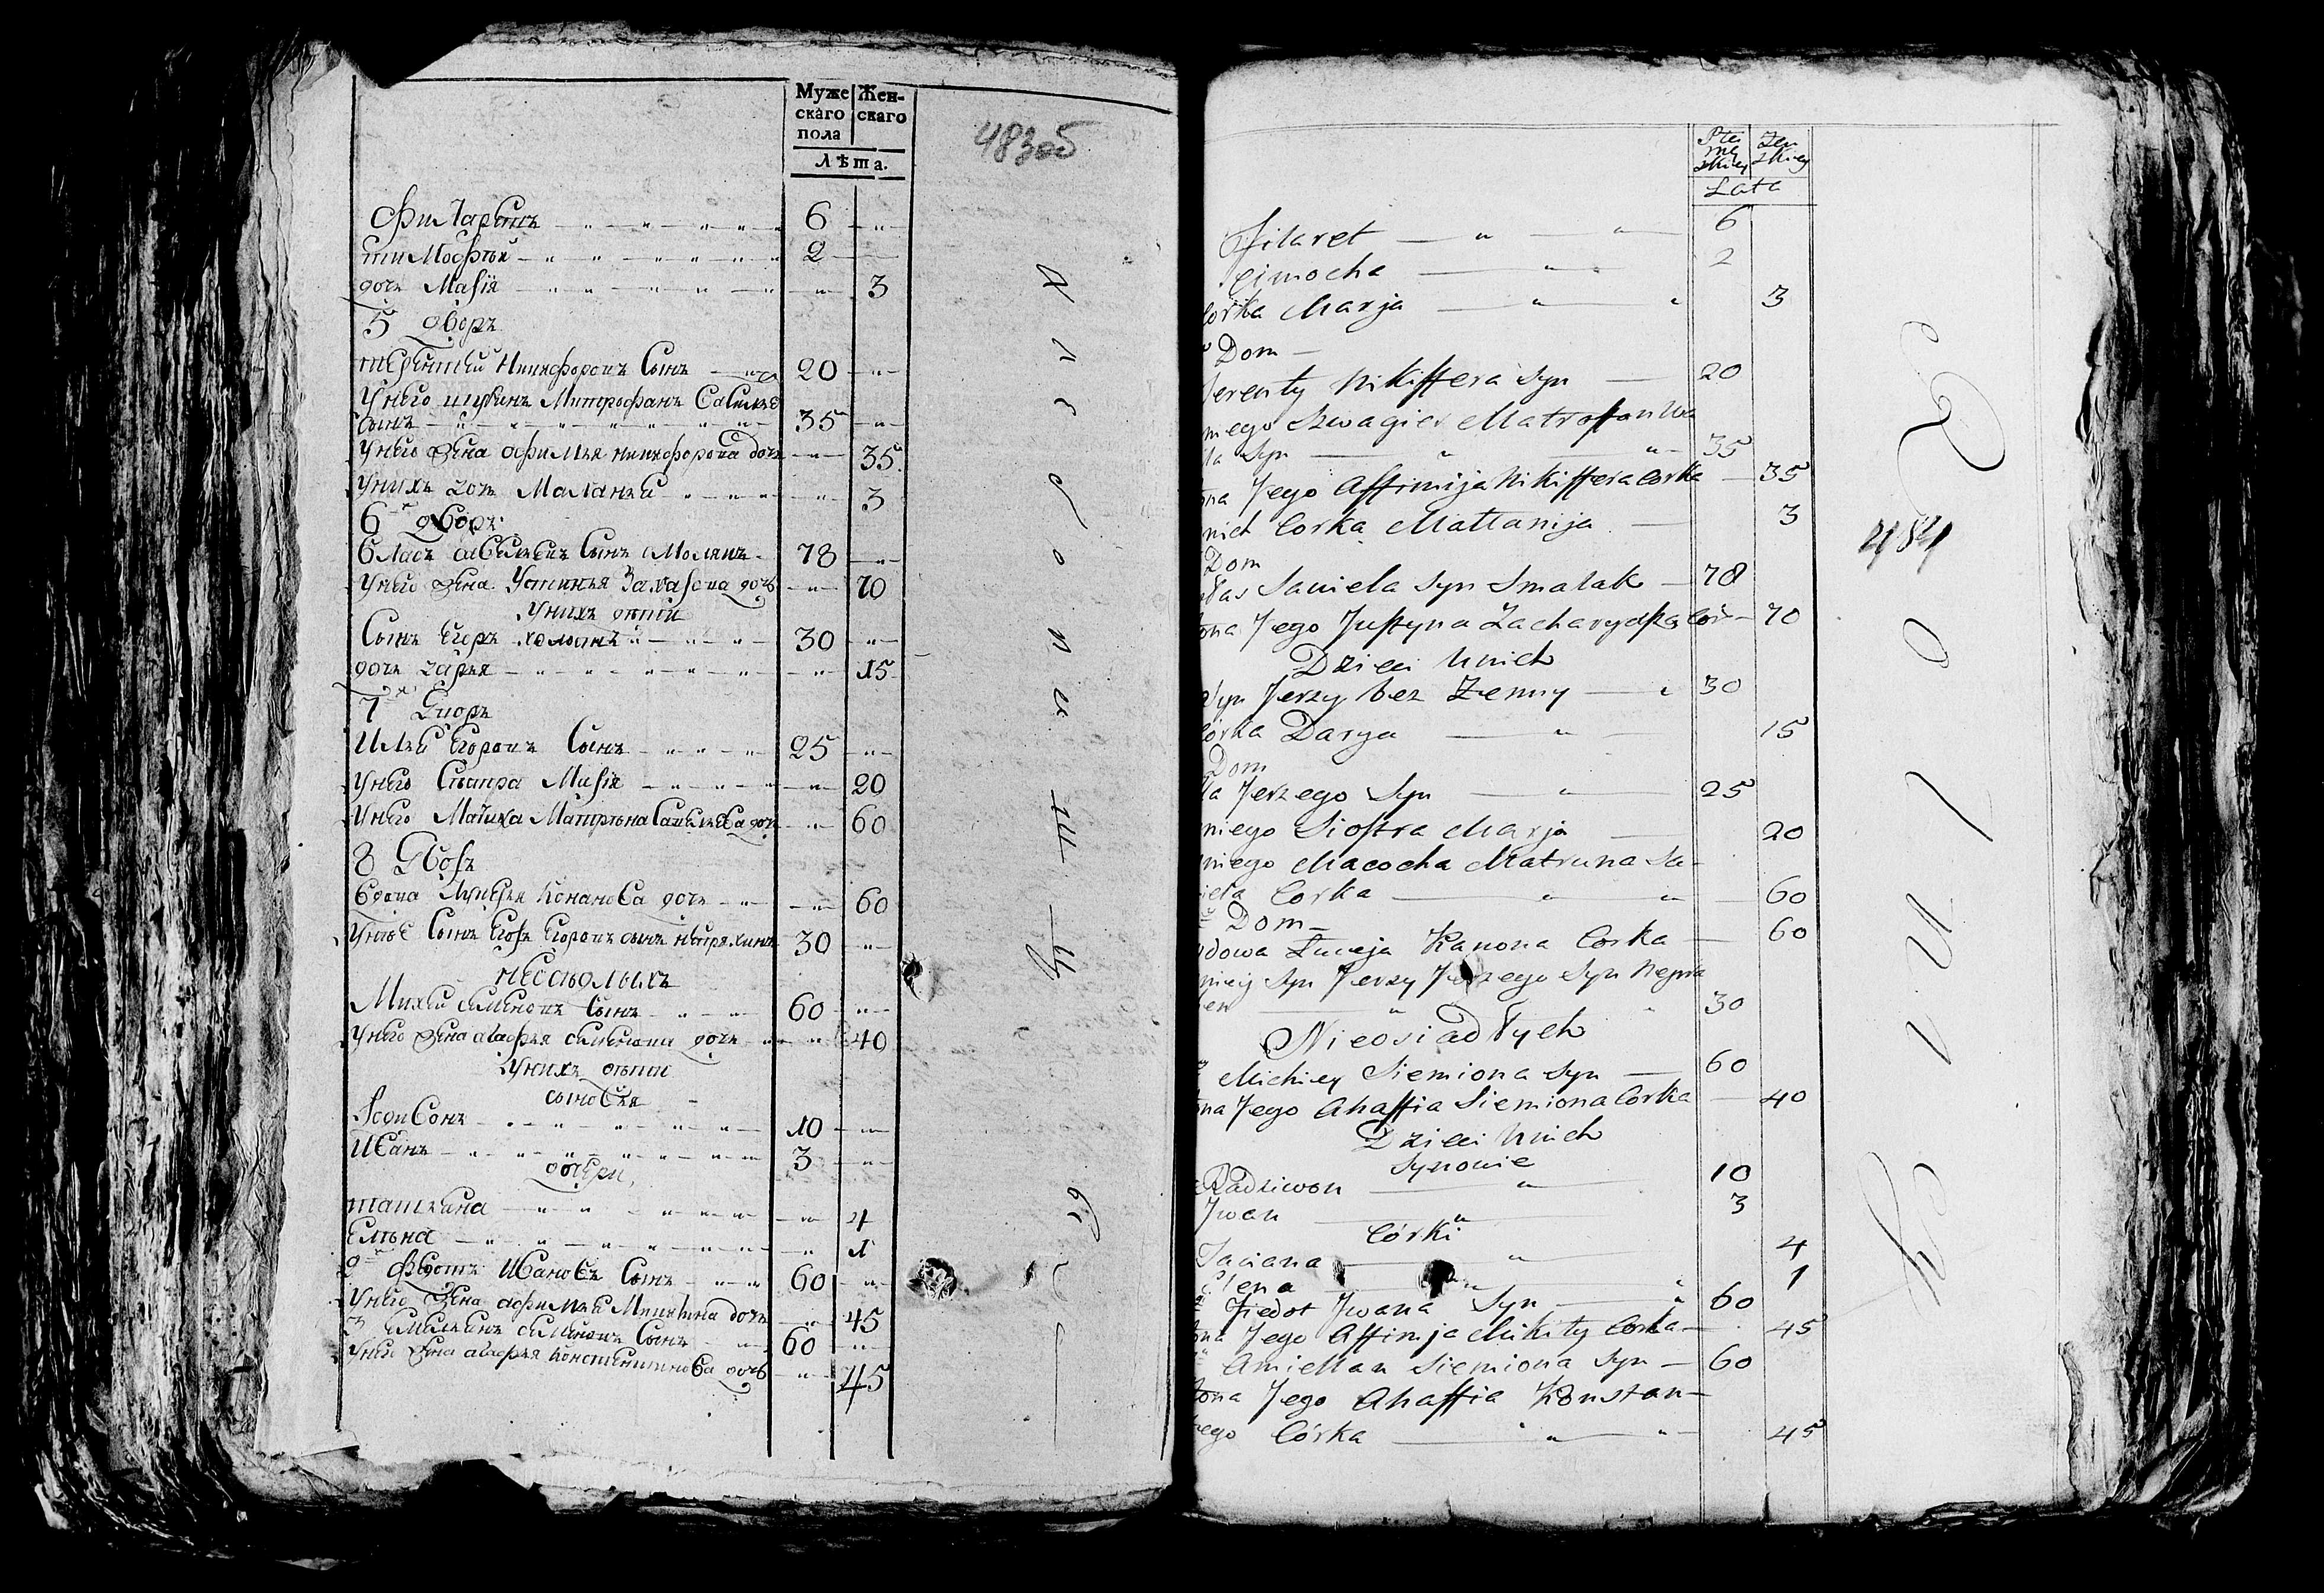 Муже Жен-
скаго скаго
пола
Лѣта.
483об
Филаретъ 6
тимофѣй 2
дочь Марїя 3
5 дворъ
терентей Никифоровъ Сынъ 20
У него шуринъ Митрофанъ Савельев
сынъ 35
У него жена афимья никифорова дочь 35
У нихъ дочь Маланья 3
6 дворъ
Власъ савельевъ Сынъ смолякъ 78
У него жена Устинья Захарова дочь 70
У нихъ дѣти
Сынъ Егоръ холостъ 30
дочь дарья 15
7 Дворъ
Илья Егоровъ Сынъ 25
У него Сестра Марїя 20
У него Мачиха Матрѣна Савельева дочь 60
8 Дворъ
Вдова Лукерья Конанова дочь 60
У нее Сынъ Егоръ Егоровъ сынъ 30
неоселыхъ
Михей семеновъ Сынъ 60
У него жена агафья семенова дочь 40
У нихъ дѣти
сыновья
Родивонъ 10
Иванъ 3
дочери
татьяна 4
Елѣна 1
2 Федотъ Ивановъ Сынъ 60
У него жена афимья Микитина дочь 45
3 емельянъ семеновъ Сынъ 60
У него жена агафья констентинова дочь 45
Płci Żeń
mę skiey
skiey
Lata
484
Filaret 6
Cimocha 2
Corka Marja 3
Dom
Terenty Nikiffera Syn 20
niego Szwagier Matrofan Wa
Syn 35
Jego Affimija Nikiffera Corka 35
nich Corka Mallanija 3
Dom
Sawiela Syn Smalak 78
Jego Justyna Zacharyaszа Cór 70
Dzieci Unich
Syn Jerzy bez Żenny 30
Córka Darya 15
Dom
Jerzego Syn 25
niego Siostra Marja 20
niego Macocha Matruna Sa-
Corka 60
Dom
dowa Łuceja Kanona Corka 60
niey Syn Jerzy Jerzego Syn Nepra
30
Nieosiadłych
Michiey Siemiona Syn 60
Jego Ahaffia Siemiona Corka 40
Dzieci Unich
Synowie
Radziwon 10
Jwan 3
Córki
Taciana 4
Elena 1
Fiedot Jwana Syn 60
Jego Affimja Mikity Corka 45
Amiellan Siemiona Syn 60
Jego Ahaffia Konstan-
Córka 45